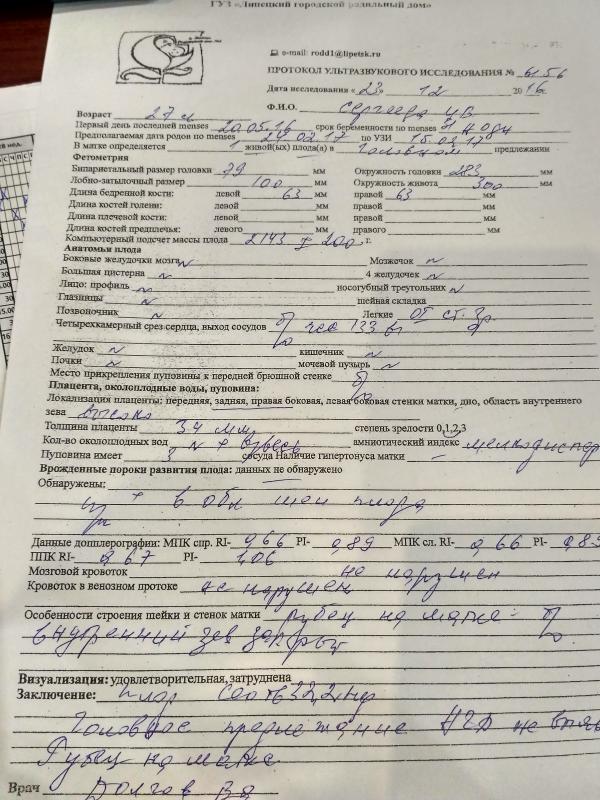 ГУЗ «Липецкий городской родильный дом»
e-mail: rodd1@lipetsk.ru
ПРОТОКОЛ УЛЬТРАЗВУКОВОГО ИССЛЕДОВАНИЯ № 6156
Дата исследования «23» 12 2016
Ф.И.О. Сергеева И В
Возраст 27 л
Первый день последней menses 20.05.16 срок беременности по menses
Предполагаемая дата родов по menses 24 02.17 по УЗИ 15.02.17
В матке определяется 1 живой(ых) плода(а) в головном предлежании
Фетометрия
Бипариетальный размер головки 79 мм Окружность головки 283 мм
Лобно-затылочный размер 100 мм Окружность живота 300 мм
Длина бедренной кости: левой 63 мм правой 63 мм
Длина костей голени: левой мм правой мм
Длина плечевой кости: левой мм правой мм
Длина костей предплечья: левого мм правого мм
Компьютерный подсчет массы плода 2143 ± 200 г.
Анатомия плода
Боковые желудочки мозга N Мозжечок N
Большая цистерна N 4 желудочек N
Лицо: профиль N носогубный треугольник N
Глазницы N шейная складка
Позвоночник N Легкие 0I ст. зр.
Четырехкамерный срез сердца, выход сосудов б/о чсс 133 в'
Желудок N кишечник N
Почки N мочевой пузырь N
Место прикрепления пуповины к передней брюшной стенке б/о
Плацента, околоплодные воды, пуповина:
Локализация плаценты: передняя, задняя, правая боковая, левая боковая стенки матки, дно, область внутреннего
зева высоко
Толщина плаценты 34 мм степень зрелости 0,1,2,3
Кол-во околоплодных вод N + взвесь амниотический индекс мелкодиспер
Пуповина имеет 3 сосуда Наличие гипертонуса матки –
Врожденные пороки развития плода: данных не обнаружено
Обнаружены:
в обл шеи плода
Данные допплерографии: МПК спр. RI- 0,66 PI- 0,89 МПК сл. RI- 0,66 PI- 0,89
ППК RI- 0,67 PI- 1,06
Мозговой кровоток не нарушен
Кровоток в венозном протоке не нарушен
Особенности строения шейки и стенок матки рубец на матке б/о
внутренний зев закрыт
Визуализация: удовлетворительная, затруднена
Заключение: плод соотв 32,2 нед
Головное предлежание НГД не выяв
Рубец на матке
Врач Долгов